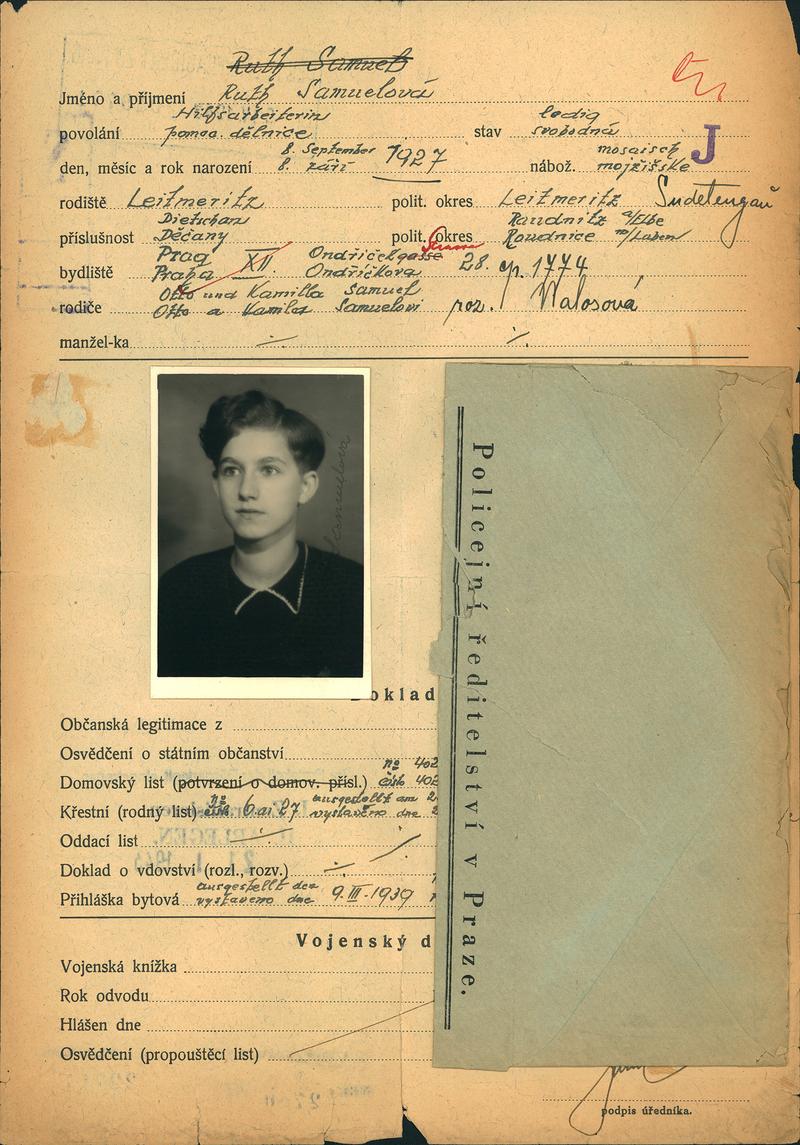 Ruth Samuel
Jméno a příjmení Ruth Samuelová
Hilfsarbeiterin ledig
povolání pomoc. dělnice stav svobodná
8. September 1927 mosaisch J
den, měsíc a rok narození 8. září nábož. mojžíšské
rodiště Leitmeritz polit. okres Leitmeritz Sudetengau
Dietschan Raudnitz a/Elbe
příslušnost Děčany polit. okres Roudnice n/Labem
Prag XII Ondříčekgasse Strasse
bydliště Praha Ondříčkova 28. čp. 1774
Otto und Kamilla Samuel
rodiče Otto a Kamila Samuelovi roz. Walosová
manžel-ka
Samuelová
Doklad
Občanská legitimace z
Osvědčení o státním občanství
No 402
Domovský list (potvrzení o domov. přísl.) čís. 402
No ausgestellt am 2
Křestní (rodný list) čís. 6 ai 27 vystaveno dne 2
Oddací list
Doklad o vdovství (rozl., rozv.)
ausgestellt den
Přihláška bytová vystaveno dne 9. III. 1939
Vojenský d
Vojenská knížka
Rok odvodu
Hlášen dne
Osvědčení (propouštěcí list)
Policejní ředitelství v Praze.
podpis úředníka.